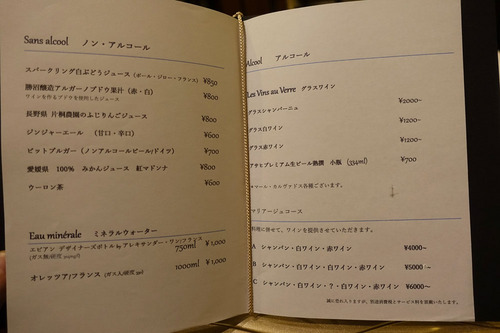 Sans alcool ノン・アルコール
スパークリング白ぶどうジュース (ポール・ジロー・フランス) ¥850
勝沼醸造アルガーノブドウ果汁 (赤・白) ¥800
ワインを作るブドウを使用したジュース
長野県 片桐農園のふじりんごジュース ¥800
ジンジャーエール (甘口・辛口) ¥600
ビットブルガー (ノンアルコールビール/ドイツ) ¥700
愛媛県 100% みかんジュース 紅マドンナ ¥800
ウーロン茶 ¥600
Eau minérale ミネラルウォーター
エビアン デザイナーズボトル by アレキサンダー・ワン/フランス 750ml ¥1,000
オレッツア/フランス 1000ml ¥1,000
Alcool アルコール
Les Vins au Verre グラスワイン
グラスシャンパーニュ ¥2000~
グラス白ワイン ¥1200~
グラス赤ワイン ¥1200~
アサヒプレミアム生ビール熟撰 小瓶 (334ml) ¥700
マール・カルヴァドス各種ございます。
マリアージュコース
料理に併せて、ワインを提供させていただきます。
A シャンパン・白ワイン・赤ワイン ¥4000~
B シャンパン・白ワイン・白ワイン・赤ワイン ¥5000~
C シャンパン・白ワイン・?・白ワイン・赤ワイン ¥6000~
誠に恐れ入りますが、別途消費税とサービス料を頂戴いたします。